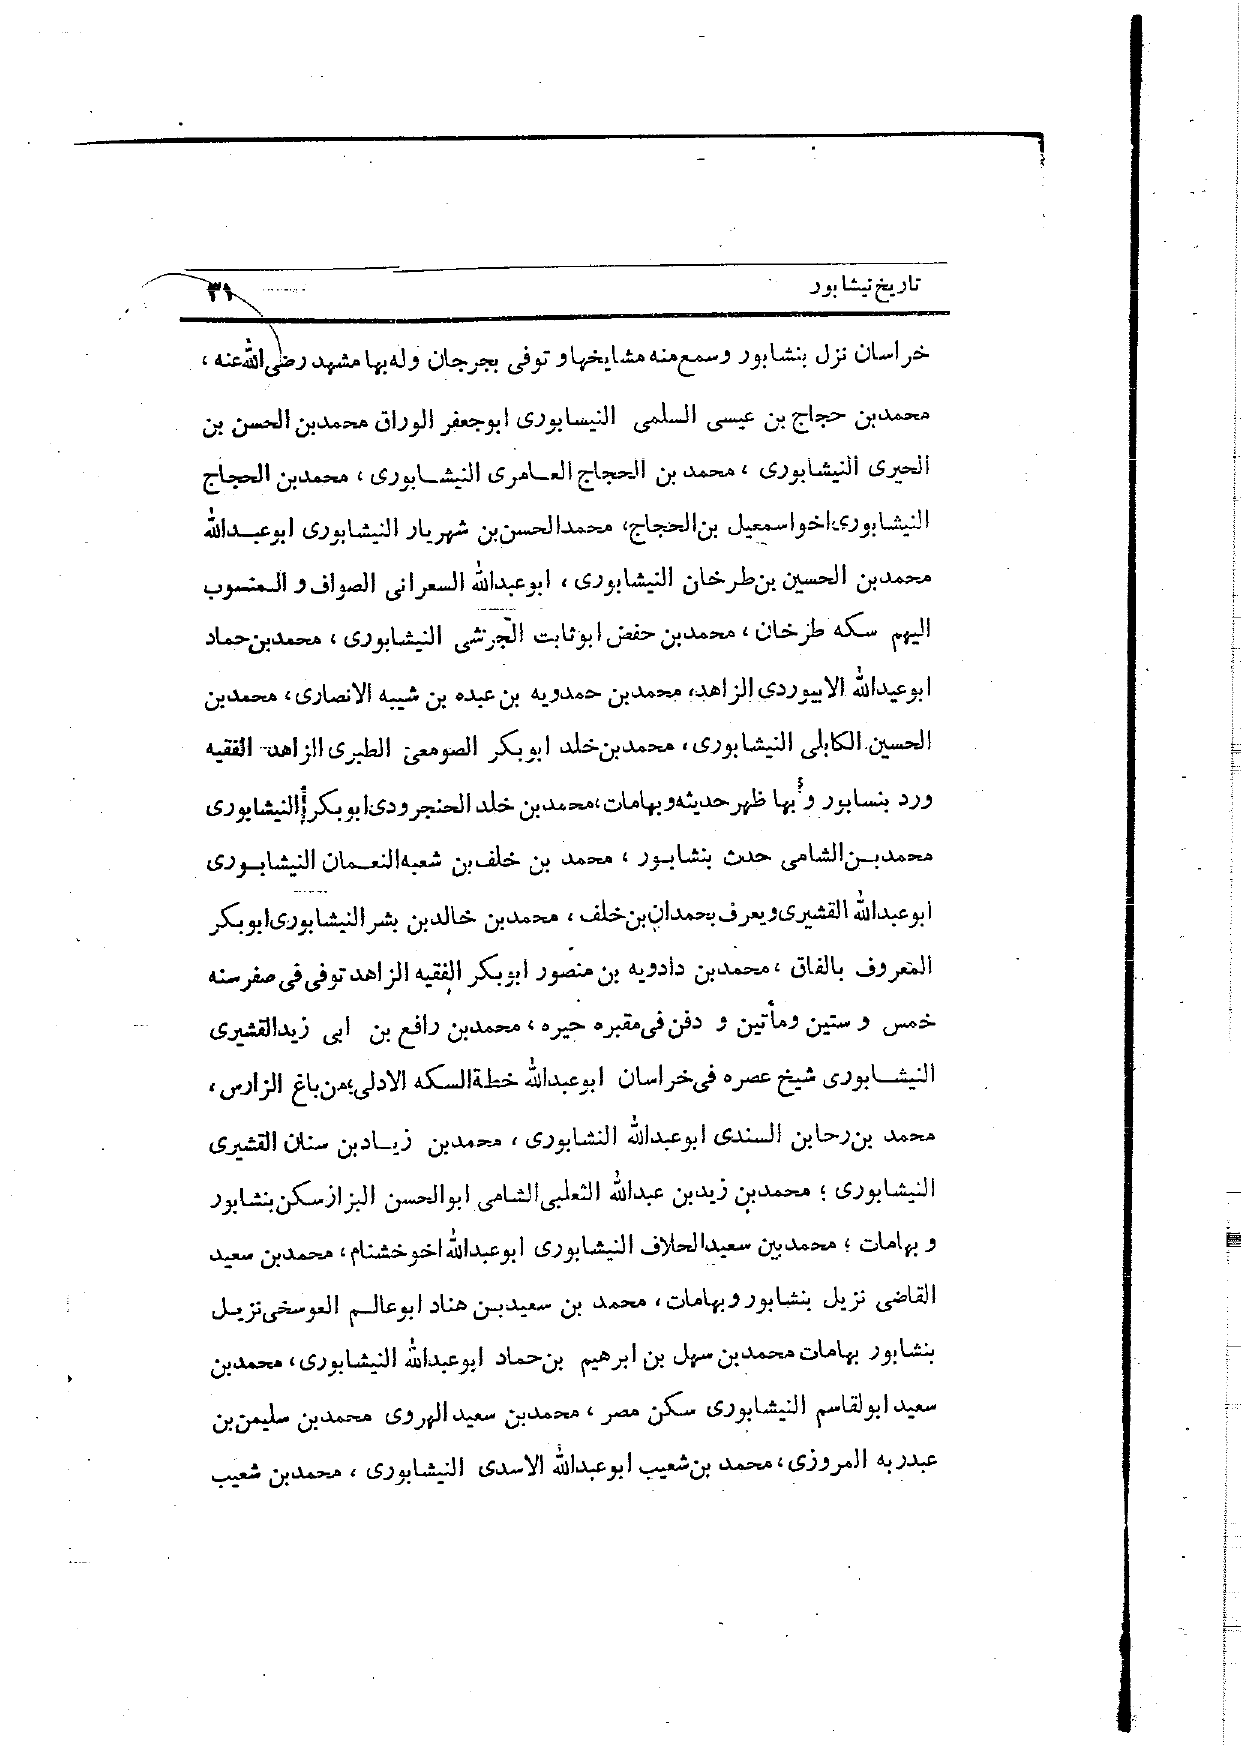 تاریخ نیشابور ۳۱
خراسان نزل بنشابور وسمع منه مشایخها و توفی بجرجان وله بها مشهد رضی الله عنه ،
محمدبن حجاج بن عیسی السلمی النیسابوری ابوجعفر الوراق محمدبن الحسن بن
الحیری النیشابوری ، محمد بن الحجاج العامری النیشابوری ، محمدبن الحجاج
النیشابوری اخو اسمعیل بن الحجاج، محمدالحسن بن شهریار النیشابوری ابوعبدالله
محمدبن الحسین بن طرخان النیشابوری ، ابوعبدالله السعرانی الصواف و المنسوب
الیهم سکه طرخان ، محمدبن حفض ابوثابت الجرشی النیشابوری ، محمدبن حماد
ابوعبدالله الابیوردی الزاهد، محمدبن حمدویه بن عبده بن شیبه الانصاری ، محمدبن
الحسین الکابلی النیشابوری ، محمدبن خلد ابوبکر الصومعی الطبری الزاهد الفقیه
ورد بنسابور و بها ظهر حدیثه و بهامات ، محمدبن خلد الحنجرودی ابوبکر النیشابوری
محمدبن الشامی حدث بنشابور ، محمد بن خلف بن شعبه النعمان النیشابوری
ابوعبدالله القشیری ویعرف بحمدان بن خلف ، محمدبن خالدبن بشر النیشابوری ابوبکر
المعروف بالفاق ، محمدبن دادویه بن منصور ابوبکر الفقیه الزاهد توفی فی صفر سنه
خمس و ستین ومأتین و دفن فی مقبره حیره ، محمدبن رافع بن ابی زیدالقشیری
النیشابوری شیخ عصره فی خراسان ابوعبدالله خطة السکه الادلی من باغ الزارس ،
محمد بن رحابن السندی ابوعبدالله النشابوری ، محمدبن زیادبن سنان القشیری
النیشابوری ؛ محمدبن زیدبن عبدالله الثعلبی الشامی ابوالحسن البزاز سکن بنشابور
و بهامات ؛ محمدبین سعیدالحلاف النیشابوری ابوعبدالله اخو خشنام ، محمدبن سعید
القاضی نزیل بنشابور و بهامات ، محمد بن سعیدبن هناد ابوعالم العوسخی نزیل
بنشابور بهامات محمدبن سهل بن ابرهیم بن حماد ابوعبدالله النیشابوری ، محمدبن
سعید ابولقاسم النیشابوری سکن مصر ، محمدبن سعید الهروی محمدبن سلیمن بن
عبدربه المروزی ، محمد بن شعیب ابوعبدالله الاسدی النیشابوری ، محمدبن شعیب